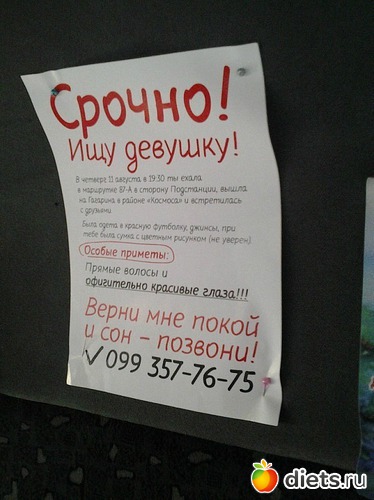 Срочно!
Ищу девушку!
В четверг 11 августа в 19:30 ты ехала
в маршрутке 87-А в сторону Подстанции, вышла
на Гагарина в районе «Космоса» и встретилась
с друзьями.
Была одета в красную футболку, джинсы, при
тебе была сумка с цветным рисунком (не уверен)
Особые приметы:
Прямые волосы и
офигительно красивые глаза!!!
Верни мне покой
и сон - позвони!
✓099 357-76-75
diets.ru